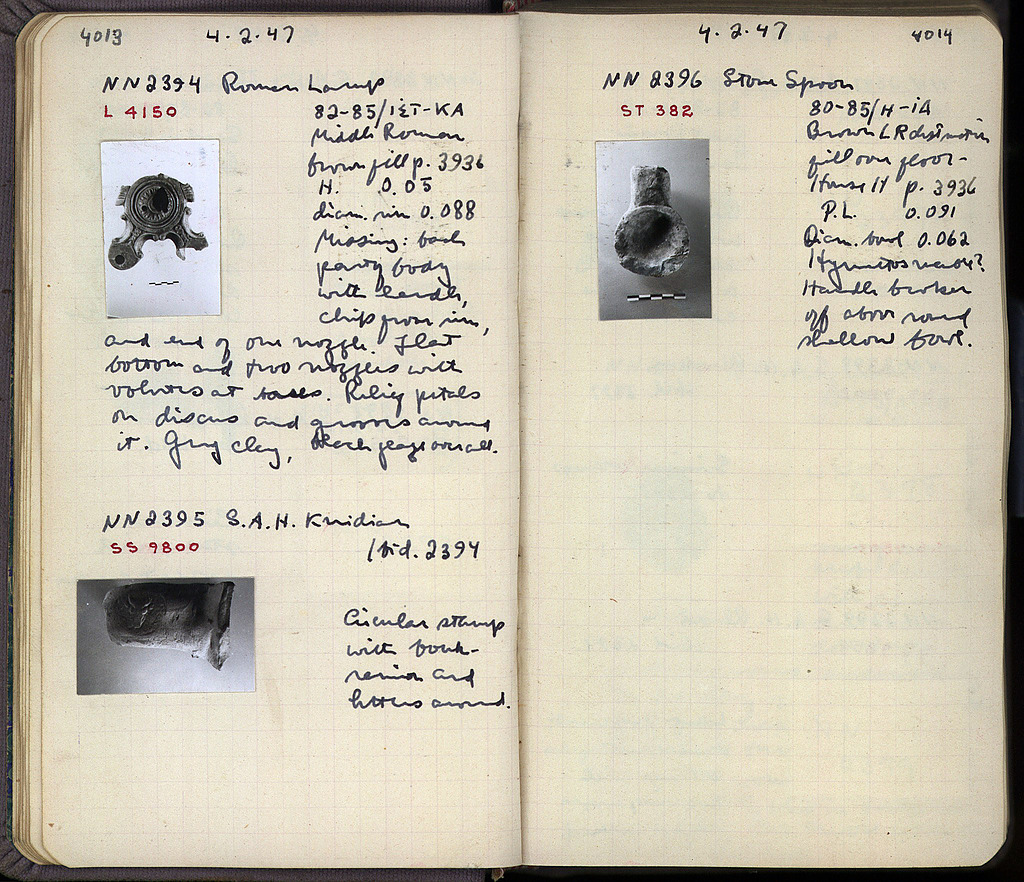 4013
4.2.47
NN2394 Roman Lamp
L 4150
82-85/ΙΣΤ-ΚΑ
Middle Roman
brown fill p. 3936
H. 0.05
diam. rim 0.088
Missing: back
part of body
with handle,
chip from rim,
and end of one nozzle. Flat
bottom and two nozzles with
volutes at bases. Relief petals
on discus and grooves around
it. Gray clay, black glaze overall.
NN2395 S.A.H. Knidian
SS 9800
Ibid. 2394
Circular stamp
with bouk-
ranion and
letters around.
4.2.47
4014
NN 2396 Stone Spoon
ST 382
80-85/Η-ΙΑ
Brown LR
fill over floor-
House H p. 3936
P.L. 0.091
Diam. bowl 0.062
Hymettos marble?
Handle broken
off above round
shallow bowl.